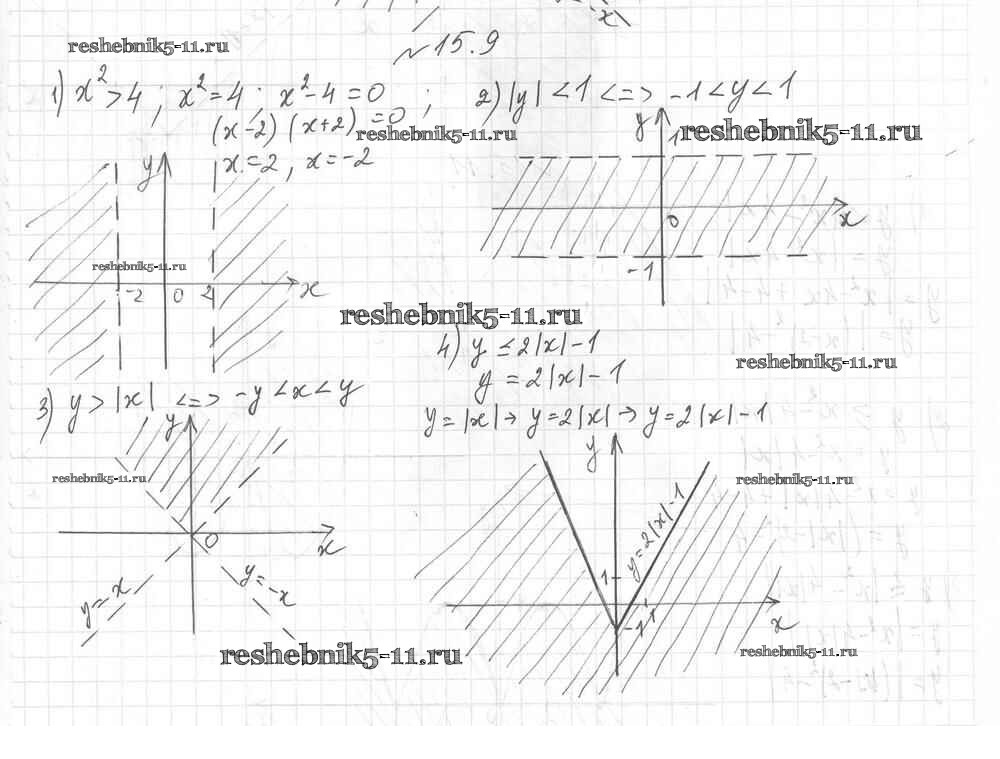 №15.9
reshebnik5-11.ru
1) x² > 4 ; x² = 4 ; x² - 4 = 0 ;
(x-2) (x+2) = 0
x = 2 , x = -2
y
-2 0 2 x
reshebnik5-11.ru
2) |y| < 1 <=> -1 < y < 1
reshebnik5-11.ru
reshebnik5-11.ru
y 1
0 x
-1
reshebnik5-11.ru
3) y > |x| <=> -y < x < y
y
reshebnik5-11.ru
0 x
y = x
y = -x
reshebnik5-11.ru
4) y ≤ 2|x| - 1
reshebnik5-11.ru
y = 2|x| - 1
y = |x| → y = 2|x| → y = 2|x| - 1
y
reshebnik5-11.ru
y = 2|x| - 1
1
-1 1 x
reshebnik5-11.ru